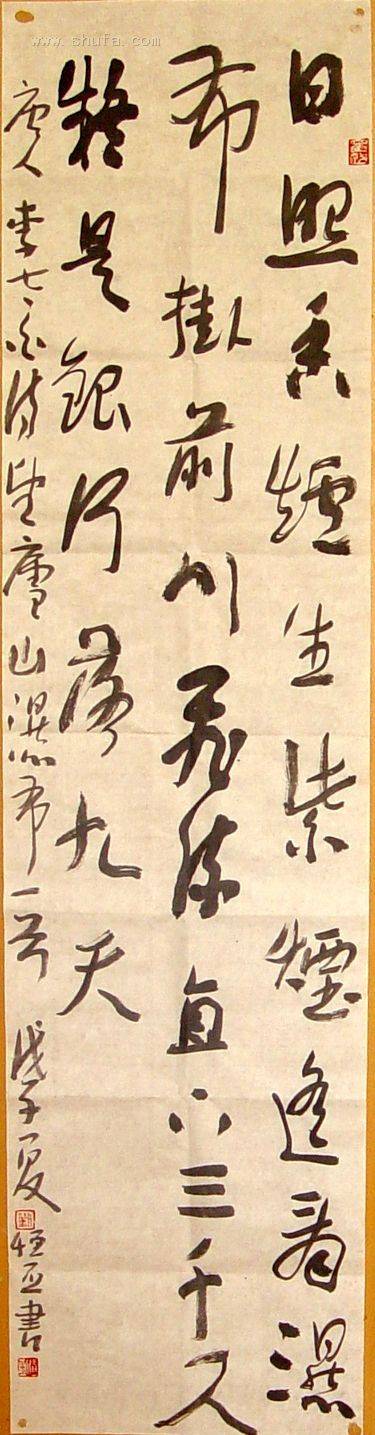 日照香爐生紫煙遙看瀑
布掛前川飛流直下三千尺
疑是銀河落九天
唐人李太白詩望廬山瀑布一首 戊子夏 恒亞書
www.shufa.com